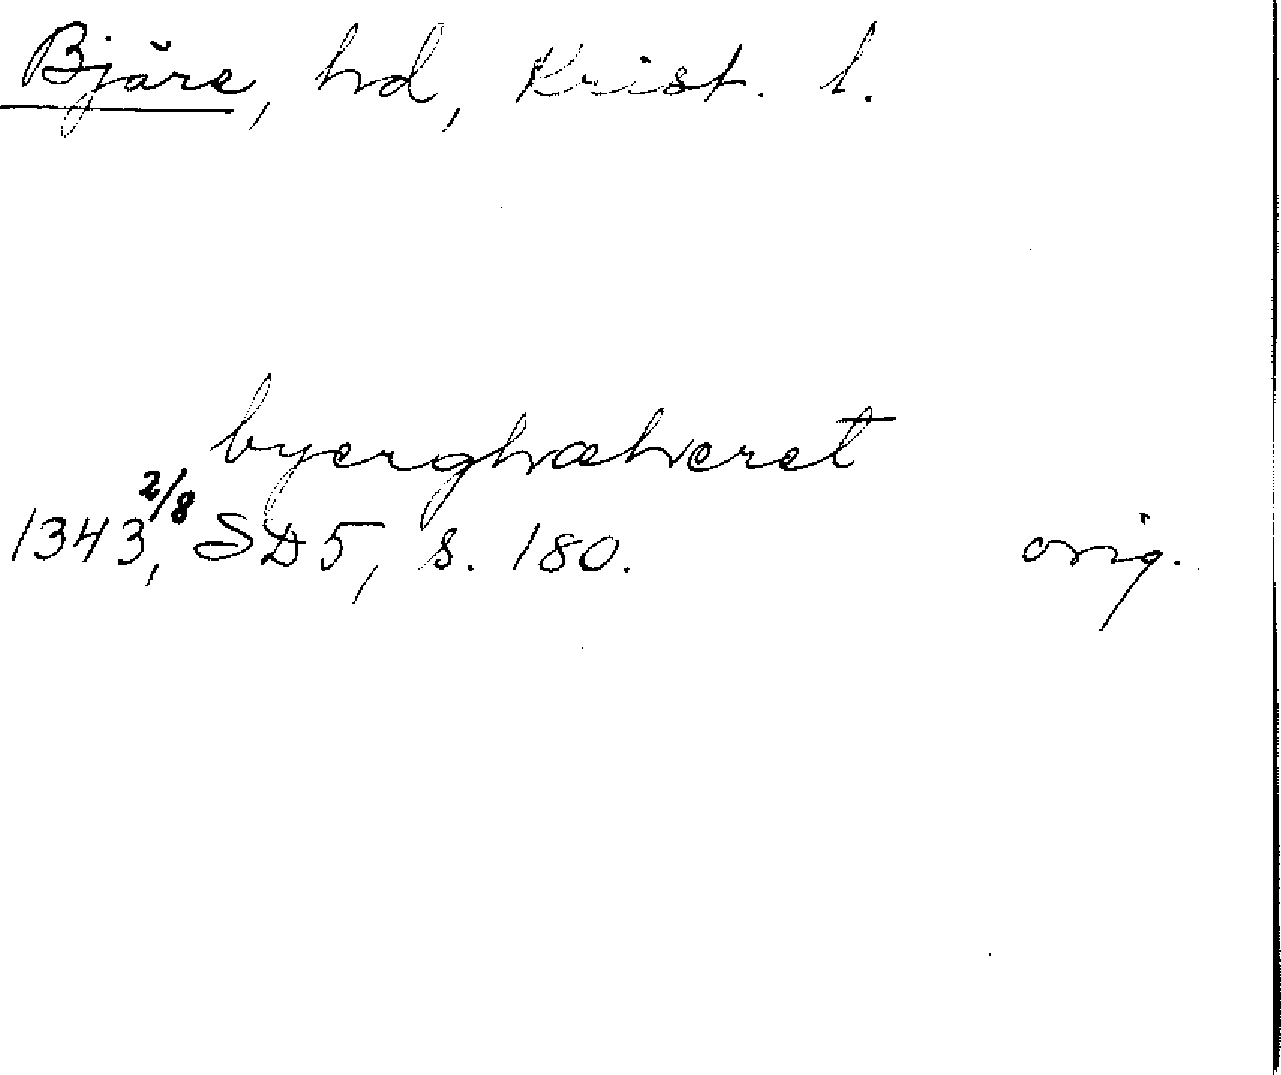 Bjäre, hd, Krist. l.
byerghæheret
1343, 2/8 SD 5, s. 180. orig.